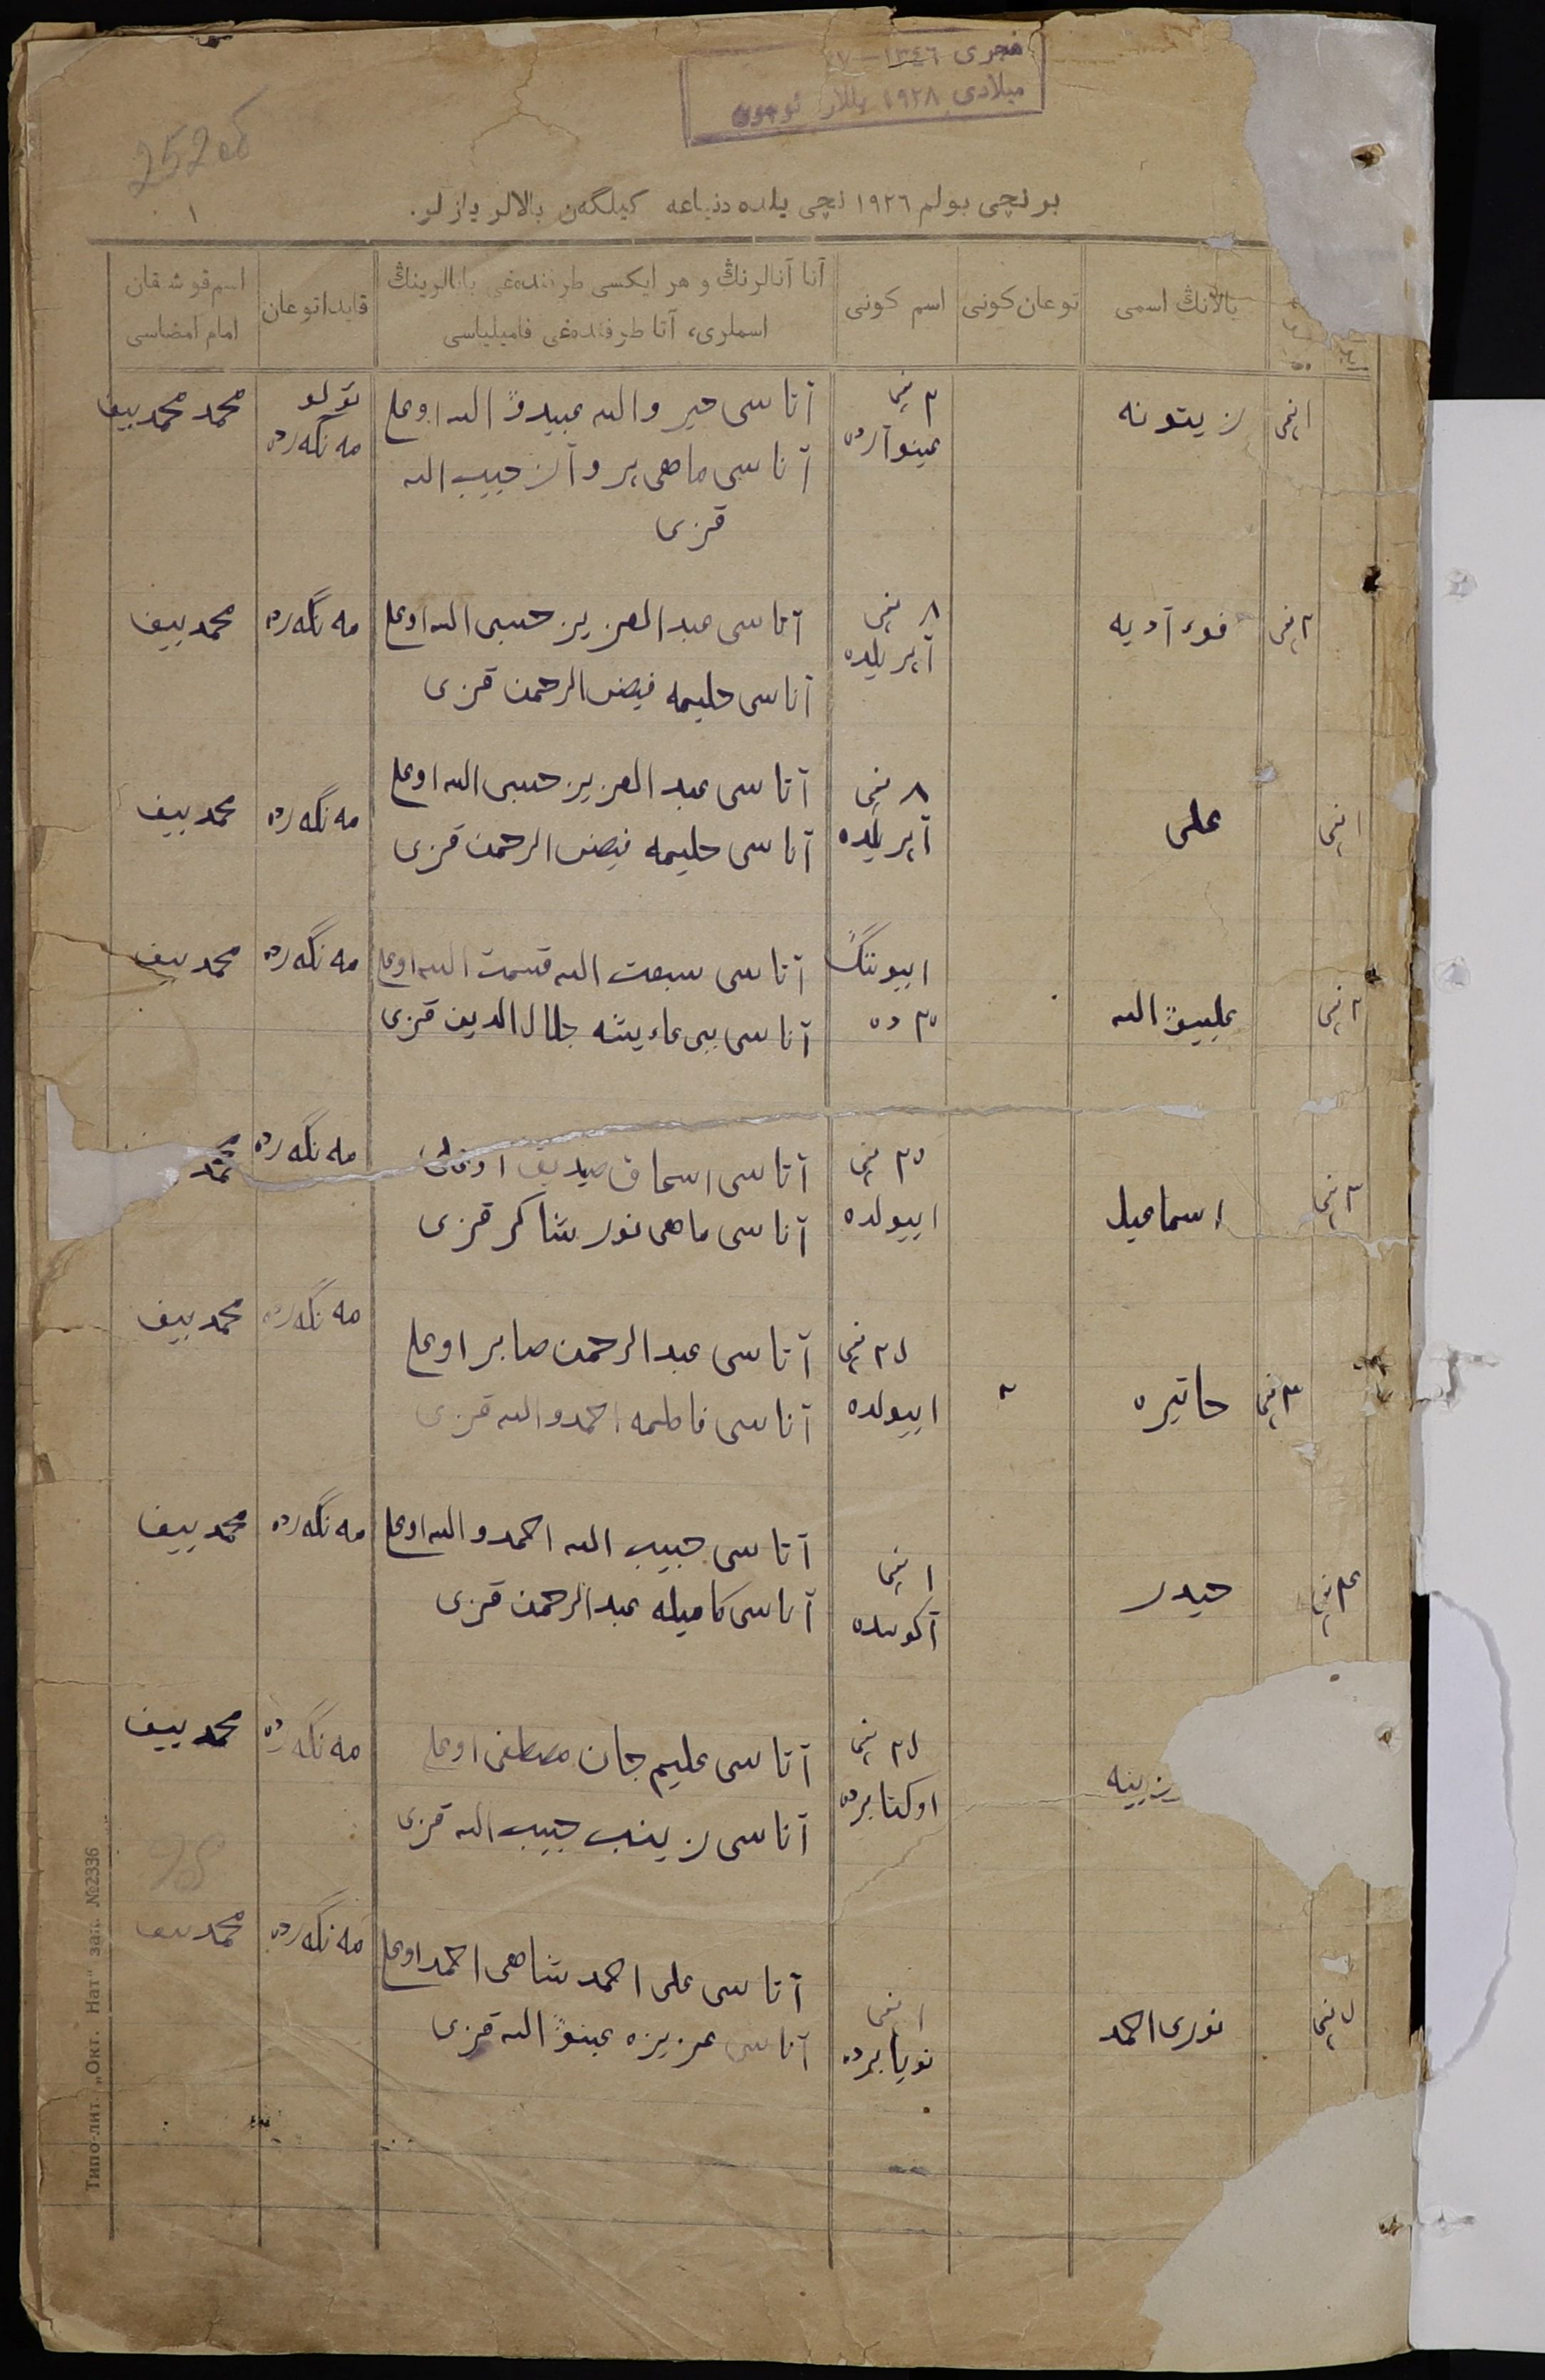 هجری ١٣٤٦—٧
میلادی ١٩٢٨ یللار ئوچون
252 об
١
برنچی بولم ١٩٢٦ نچی یلده دنیاعه کیلگەن بالالر یازلو.
بالانڭ اسمی
توعان کونی
اسم کونی
آتا آنالرنڭ و هر ایکسی طرفندەغی بابالرینڭ
اسملری، آتا طرفندەغی فامیلیاسی
قایدا توعان
اسم قوشقان
امام امضاسی
١ نچی
زیتونه
٢ نچی
عینوآرده
آتا سی خیر والله عبیدوْ الله اوعلی
آنا سی ماهی پروآز حبیب الله
قزی
تولو
مه نگه رده
محمد محمدییف
٢ نچی
فوءآدیه
٨ نچی
آپریلده
آتا سی عبد العزیز حبیبی الله اوعلی
آنا سی حلیمه فیض الرحمن قزی
مه نگه رده
محمدییف
١ نچی
علی
٨ نچی
آپریلده
آتا سی عبد العزیز حبیبی الله اوعلی
آنا سی حلیمه فیض الرحمن قزی
مه نگه رده
محمدییف
٢ نچی
اییوننڭ
٢٥ ده
آتا سی سبعت الله قسمت الله اوعلی
آنا سی بی عاءیشه جلال الدین قزی
مه نگه رده
محمدییف
٣ نچی
اسماعیل
٢٥ نچی
اییولده
آتا سی اسحاق صیدیق اوعلی
آنا سی ماهی نور شاکر قزی
مه نگه رده
٣ نچی
حاتیره
اییولده
آتا سی عبد الرحمن صابر اوعلی
آنا سی فاطمه احمدوالله قزی
مه نگه رده
محمدییف
٤ نچی
حیدر
١ نچی
آکوسده
آتا سی حبیب الله احمدوالله اوعلی
آنا سی کامیله عبد الرحمن قزی
مه نگه رده
محمدییف
اوکتابرده
آتا سی علیم جان مصطفی اوعلی
آنا سی زینب حبیب الله قزی
مه نگه رده
محمدییف
نوری احمد
١ نچی
نویابرده
آتا سی علی احمد شاهی احمد اوعلی
آنا سی عزیزه عینوْ الله قزی
مه نگه رده
محمدییف
Типо-лит. „Окт. Нат" зак. №2336